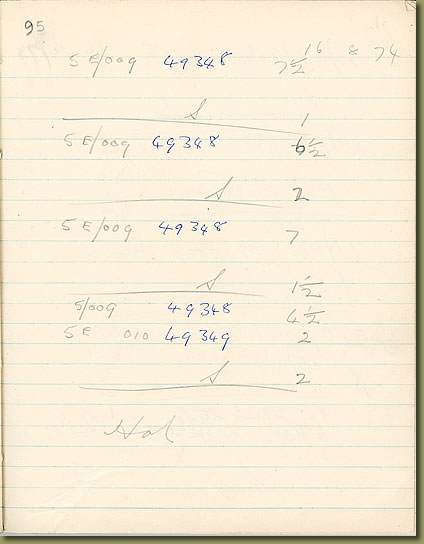 95
5 E/009 49348 7½ 16 8 74
S 1
5 E/009 49348 6½
S 2
5 E/009 49348 7
S 1½
5/009 49348 4½
5E 010 49349 2
S 2
Hol